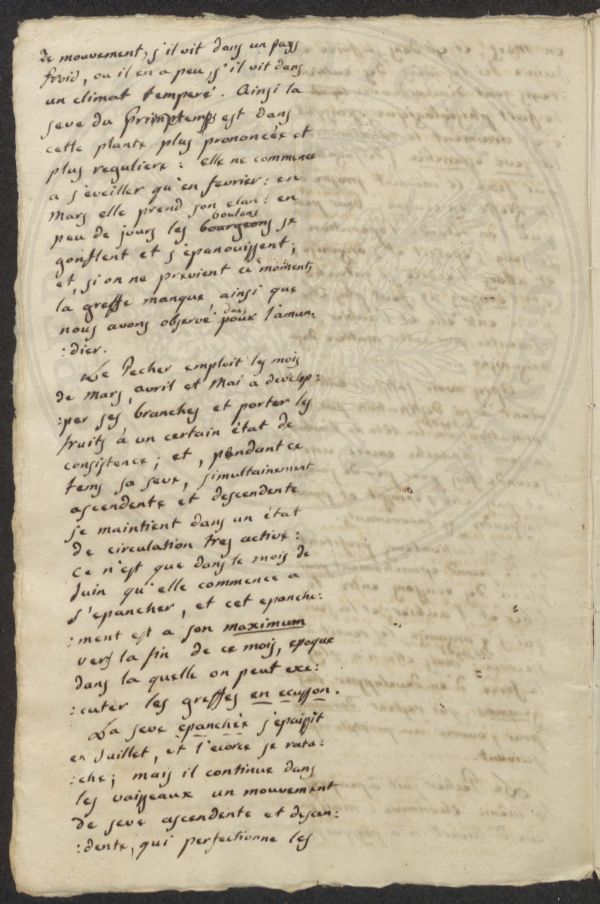 de mouvement, s'il vit dans un pays
froid, ou il en a peu s'il vit dans
un climat temperé. Ainsi la
seve du Primptemps est dans
cette plante plus prononcée et
plus reguliere : elle ne commence
a s'eveiller qu'en fevrier : en
Mars elle prend son elan : en
boutons
peu de jours les bourgeons se
gonflent et s'epanouissent ;
et, si on ne previent ce moment,
la greffe manque ainsi que
dans
nous avons observé pour l'aman-
:dier.
Le Pecher emploit les mois
de Mars, avril et Mai à develop:
:per ses branches et porter les
fruits à un certain état de
consistence ; et, pendant ce
tems sa seve, simultainement
ascendente et descendente
se maintient dans un état
de circulation tres active :
Ce n'est que dans le mois de
Juin qu'elle commence a
s'epancher, et cet epanche:
:ment est a son maximum
vers la fin de ce mois, epoque
dans la quelle on peut exe:
:cuter les greffes en ecusson.
La seve epanchée s'épaissit
en Juillet, et l'ecorce se rata:
:che ; mais il continue dans
les vaisseaux un mouvement
de seve ascendente et descen:
:dente, qui perfectionne les